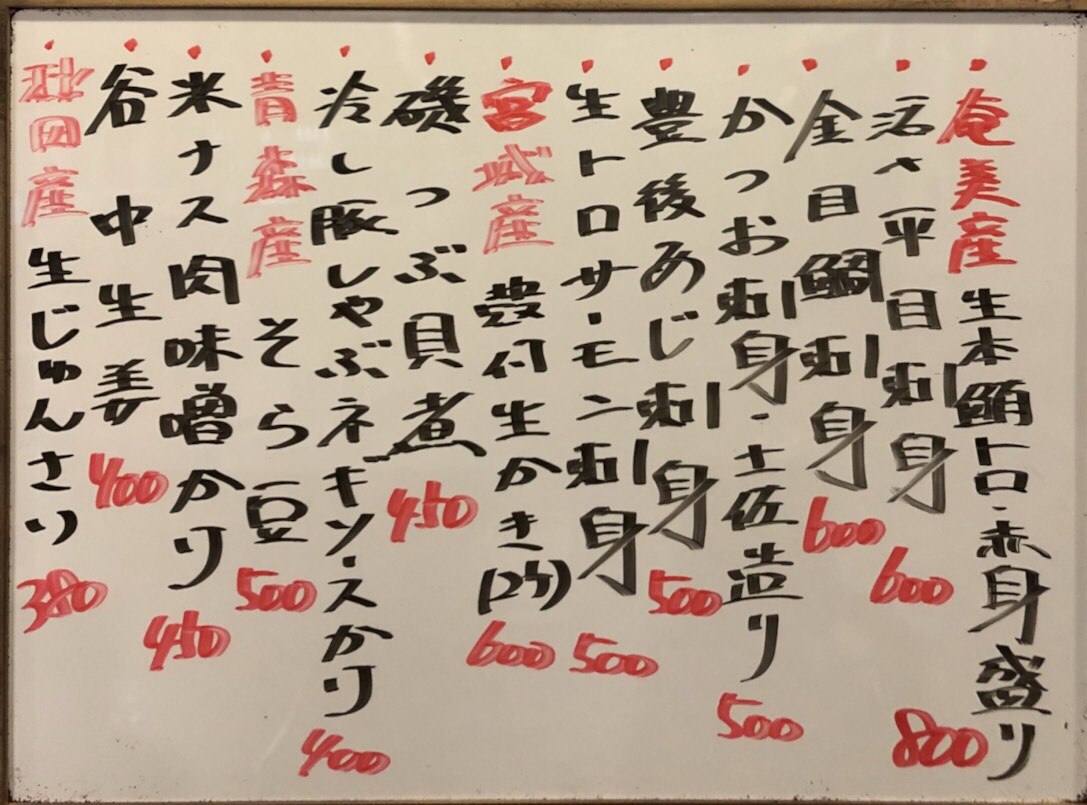 奄美産 生本鮪トロ・赤身盛り 800
活〆平目刺身 600
金目鯛刺身 600
かつお刺身・土佐造り 500
豊後あじ刺身 500
生トロサーモン刺身 500
宮城産 殻付生かき(2ケ) 600
磯つぶ貝煮 450
冷し豚しゃぶネギソースかけ 400
青森産 そら豆 500
米ナス肉味噌かけ 450
谷中生姜 400
秋田産 生じゅんさい 380